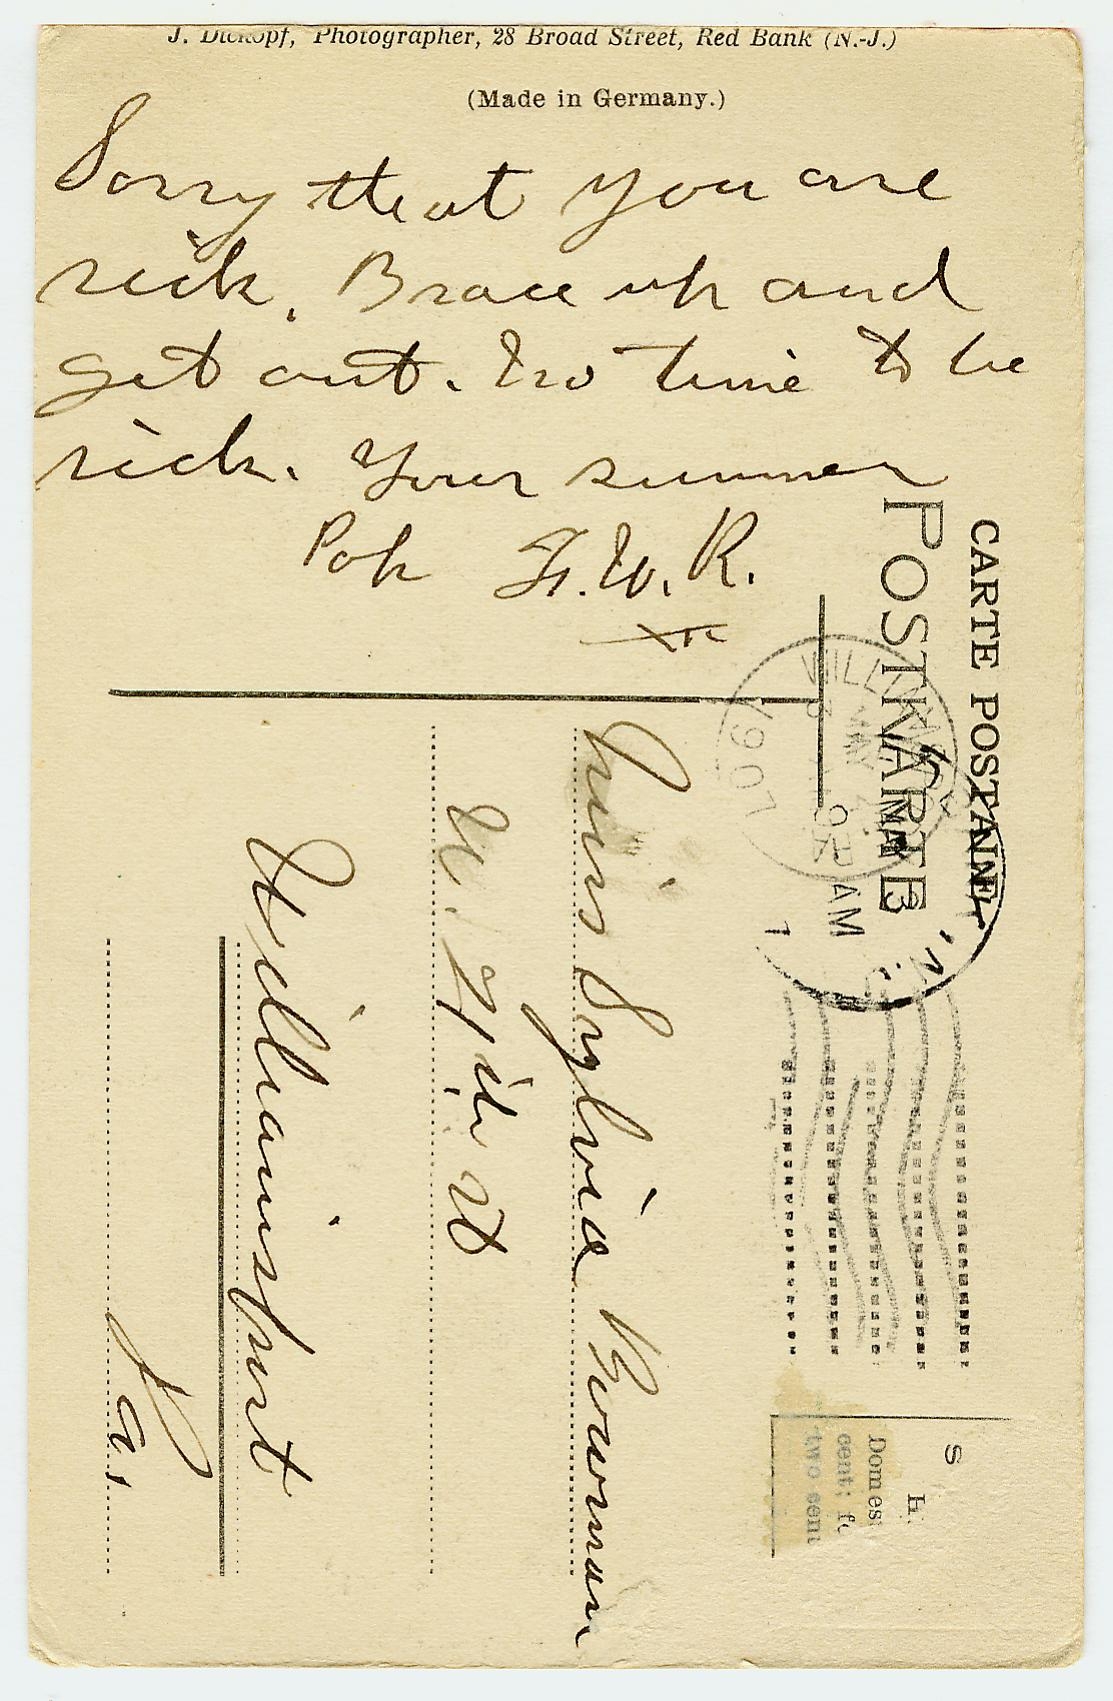 J. Dickopf, Photographer, 28 Broad Street, Red Bank (N.-J.)
(Made in Germany.)
Sorry that you are
sick. Brace up and
get out. No time to be
sick. Your summer
Pop F. W. R.
CARTE POSTALE
POSTKARTE
WILLIAMSPORT
MAY
1907
AM
S
Domes
cent; fo
two cent
Miss Sylvia Bowman
W. 4th st
Williamsport
Pa.